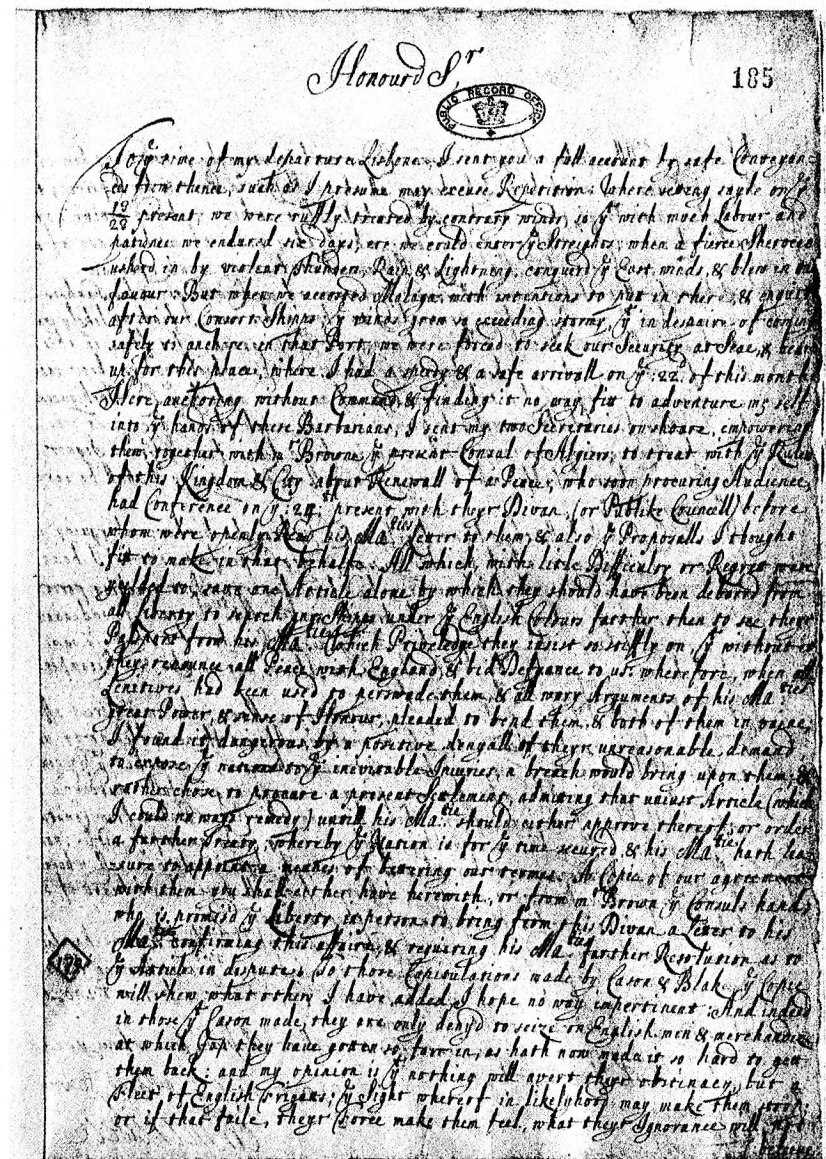 Honourd Sr
185
PUBLIC RECORD OFFICE
To ye time of my departure Lisbone, I sent you a full account by safe Conveyan-
ces from thence, such as I presume may excuse Repetition: Where seting sayle on ye
18/28 present, we were ruffly treated by contrary winds, so yt with much Labour and
patience we endured six days, ere we could enter ye Streights; when a fierce
usherd in by violent Thunder, Rain & Lightning, conquerd ye East winds, & blew in our
favour: But when we accosted Malaga with intentions to put in there, & enquire
after our Consort Shipps, ye winds grew so exceeding stormy, yt in despaire of coming
safely to anchor in that Port, we were forced to seek our Security at Sea, & bear
up for this place, where I had a speedy & a safe arrivall on ye :22d of this month
Here anchoring without Command, & finding it no way fitt to adventure my self
into ye hands of these Barbarians, I sent my two Secretaries on shoare, empowering
them, together with mr Browne ye present Consul of Algiers, to treat with ye Rulers
of this Kingdom & City about Renewall of a Peace; who soon procuring Audience,
had Conference on ye :24th present with theyr Divan, (or Publike Councell) before
whom were openly Read his Maties Letter to them, & also ye Proposalls I thought
fit to make in that behalfe. All which with litle Difficulty or Regret were
yelded to, save one Article alone by which they should have been debared from
all liberty to search any Shipps under ye English Colours further then to see there
Passport from his Matie: Which Priveledge they insist so stiffly on, yt without it
they renounce all Peace with England, & bid Defyance to us: wherefore, when all
Lenitives had been used to perswade them, & all wary Arguments of his Maties
Great Power, & sense of Honour, pleaded to bend them, & both of them in vaine,
I found it dangerous by a positive denyall of theyr unreasonable demand
to expose ye nation to ye inevitable Injuries, a breach would bring upon them &
rather chose to procure a present Setlement, admiting that uniust Article (which
I could no ways remedy) untill his Matie should either approve thereof, or order
a further Treaty; whereby ye Nation is for ye time secured, & his Matie hath lea-
sure to appoint a meanes of bettering our termes. A Copie of our agreement
with them you shall either have herewith, or from mr Brown ye Consuls hands
who is promisd ye Liberty in person to bring from this Divan a Letter to his
Matie confirming this affaire, & requiring his Maties further Resolution as to
178
ye Article in dispute. (so those Capitulations made by Cason & Blak) ye Copie
will shew what others I have added, I hope no way impertinent: And indeed
in those yt Cason made, they are only denyd to seize on English men & merchandize
at which Gap they have gotten so farr in, as hath now made it so hard to gett
them back: and my opinion is yt nothing will avert theyr obstinacy, but a
Fleet of English Frigats; ye sight whereof in likelyhood may make them stoop;
or if that faile, theyr Force make them feel, what theyr Ignorance will not
believe